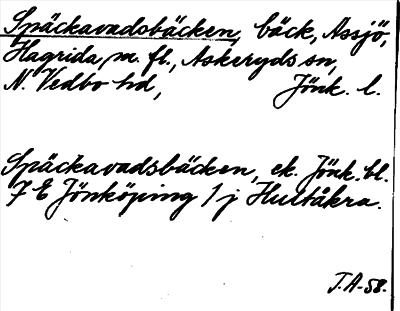 Späckavadsbäcken, bäck, Assjö,
Hagrida, m. fl., Askeryds sn,
N. Vedbo hd, Jönk. l.
Späckavadsbäcken, ek. Jönk. bl.
7 E Jönköping 1 j Hultåkra.
J.A-58.